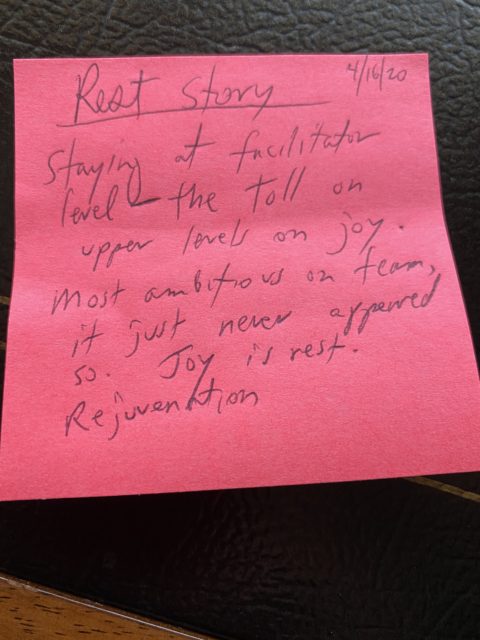 Rest Story
4/16/20
Staying at facilitator
level - the toll on
upper levels on joy.
Most ambitious on team,
it just never appeared
so. Joy is rest.
Rejuvenation